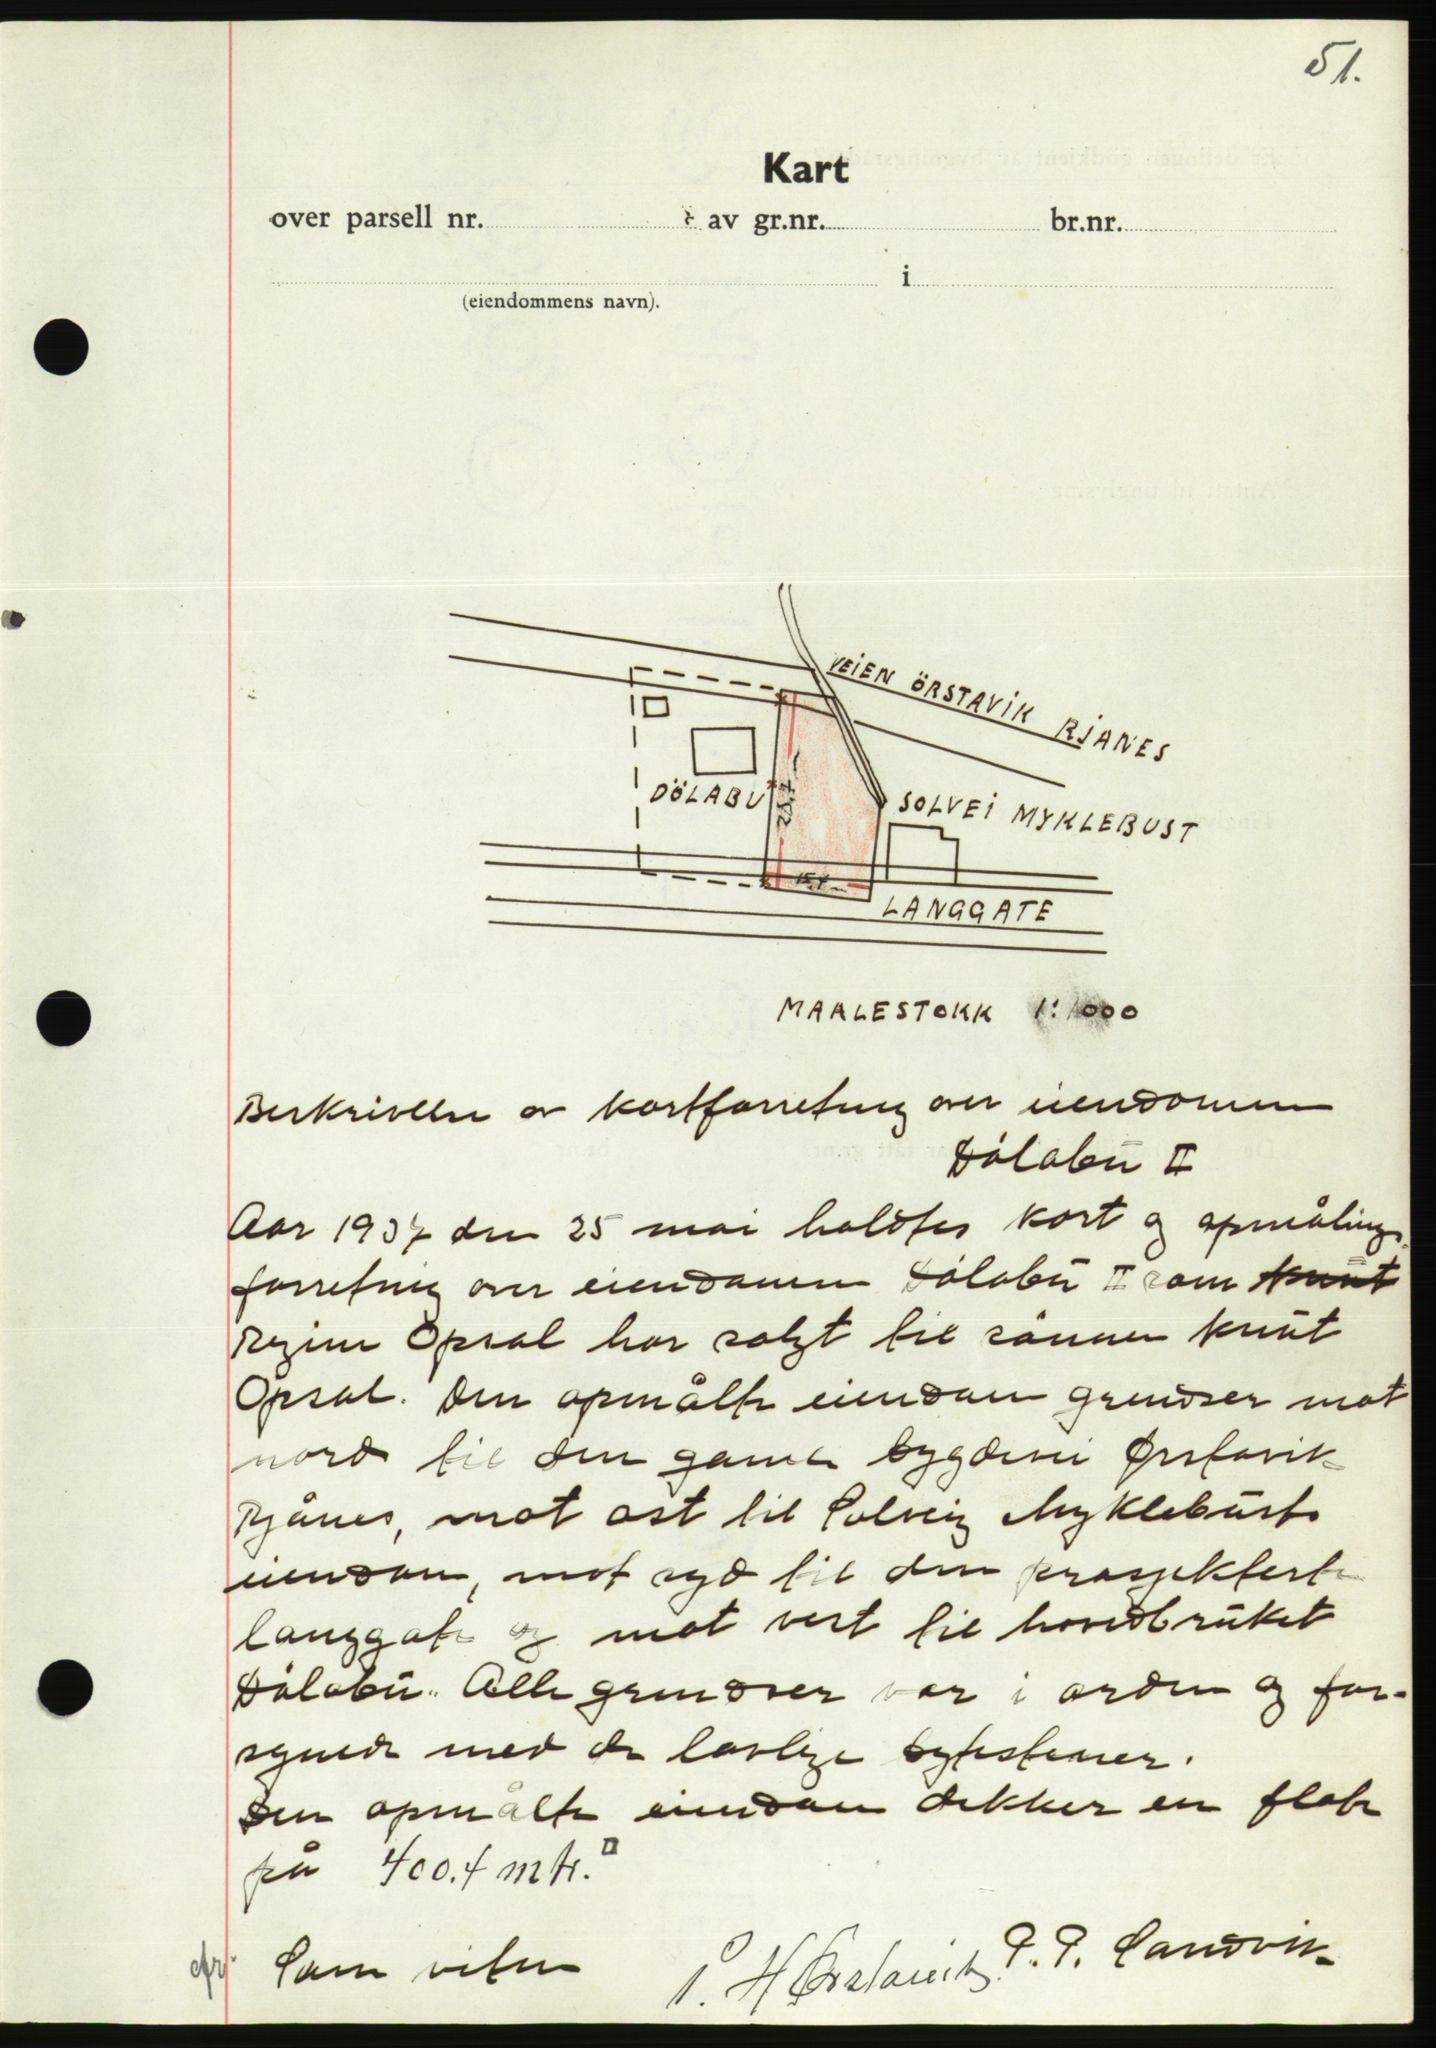 51.
Kart
over parsell nr. av gr.nr. br.nr.
i
(eiendommens navn).
VEIEN ÖRSTAVIK RJANES
DÖLABU
SOLVEI MYKLEBUST
15.4
LANGGATE
MAALESTOKK 1:1000
Beskrivelse av kartforretning over eiendommen
Dölabu II
Aar 1937 den 25 mai holdtes kart og opmålings
forretning over eiendommen Dölabu II som Knut
Regine Opsal har solgt til sönnen Knut
Opsal. Den opmålte eiendom grendser mot
nord til den gamle bygdevei Ørstavik-
Rjånes, mot ost til Solveig Myklebusts
eiendom, mot syd til den prosjekterte
langgate og mot vest til hovedbruket
Dölabu. Alle grendser var i orden og for-
synede med de lovlige bytestener.
Den opmålte eiendom dekker en flate
på 400.4 mtr.□
Som vitne P. H Ørstavik P. P. Sandvik